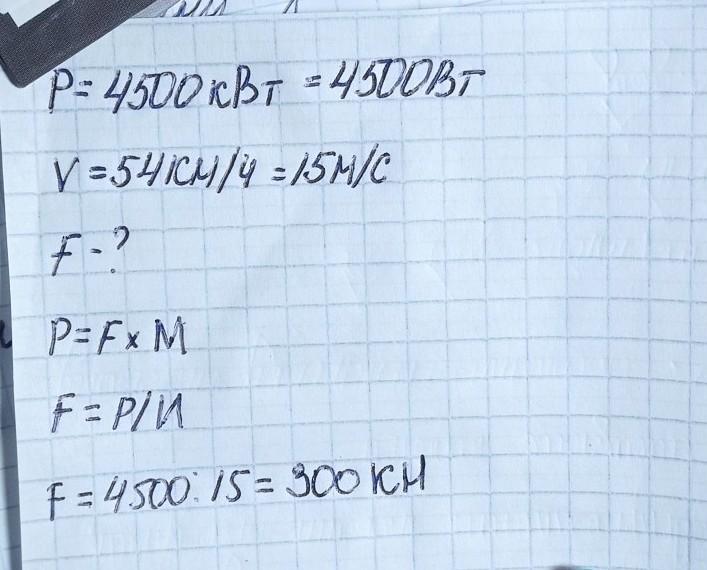 P = 4500 кВт = 4500Вт
V = 54 км/ч = 15 м/с
F - ?
P = F x M
F = P/И
F = 4500 : 15 = 300 кН